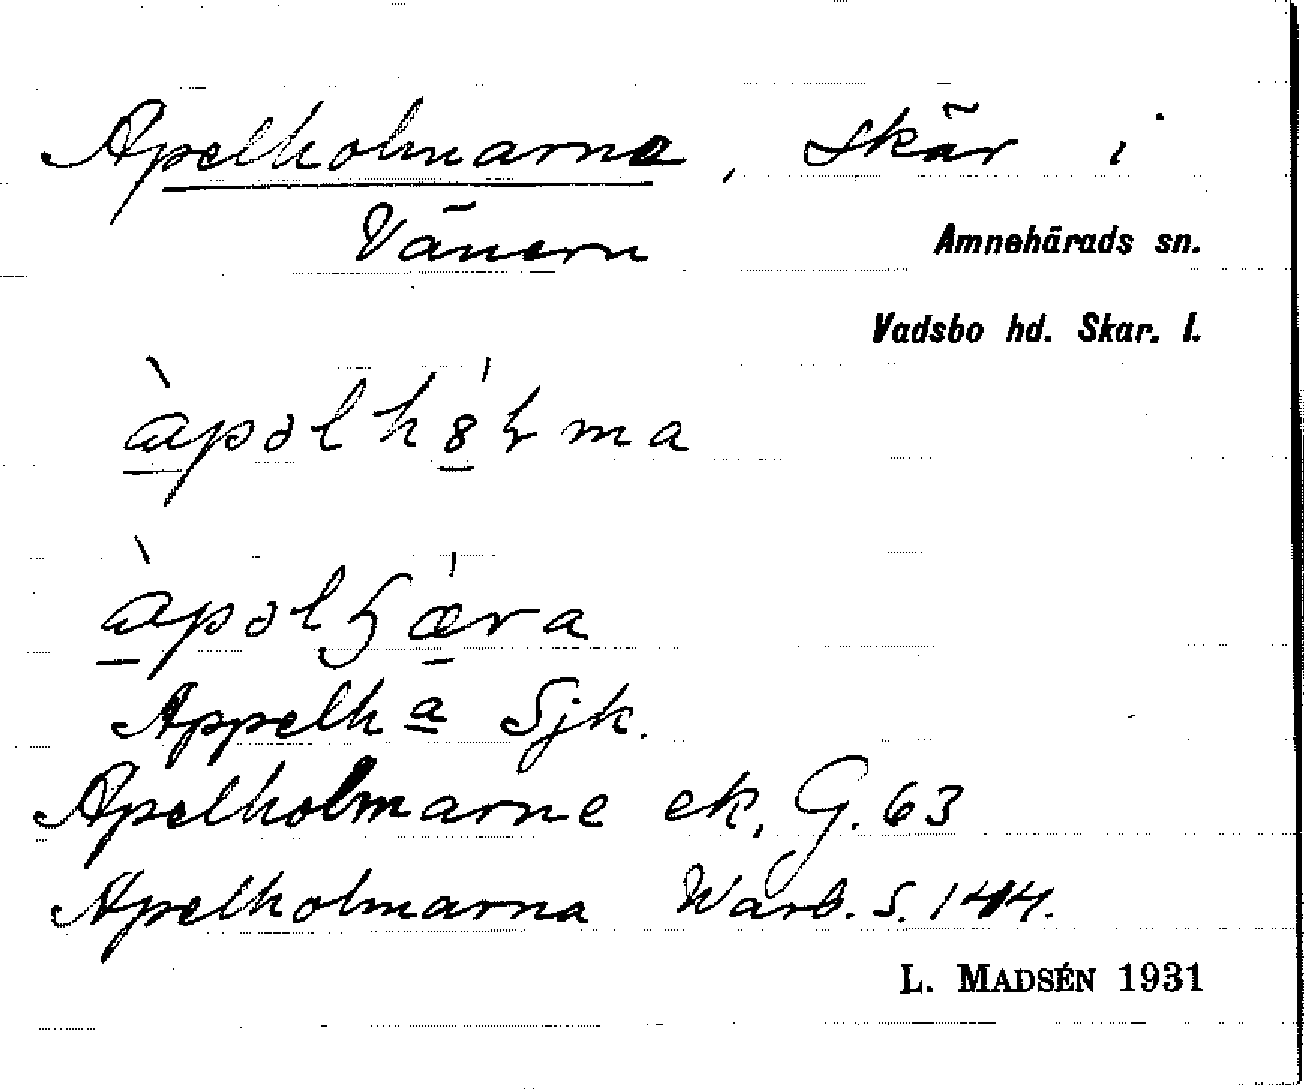 Apelholmarne, skär i
Vänern
Amnehärads sn.
Vadsbo hd. Skar. l.
àpəlhȣ́ɫma
àpəlʃǽra
Appelh a Sjk.
Apelholmarne ek, G. 63
Apelholmarna Warb. S. 144.
L. MADSÉN 1931